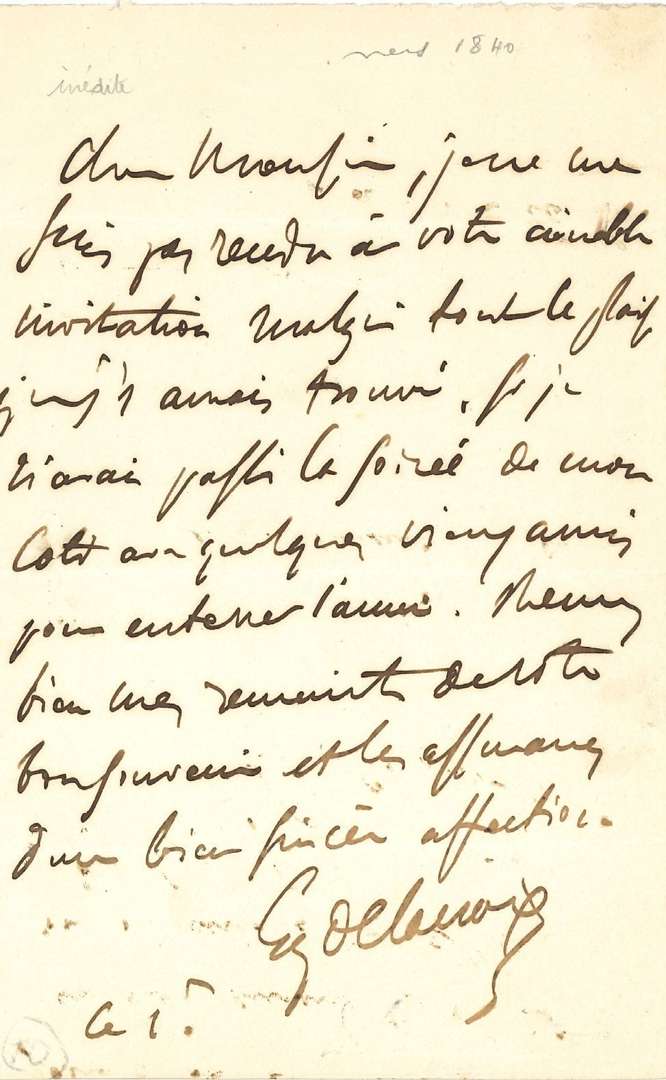 vers 1840
inédite
Cher Monsieur, je ne me
suis pas rendu à votre aimable
invitation malgré tout le plaisir
que j'y aurais trouvé. Si je
n'avais passé la soirée de mon
coté avec quelques vieux amis
pour enterrer l'année. Recevez
bien mes remerciements de votre
bon souvenir et les assurances
d'une bien sincère affection.
Eug Delacroix
Ce 1er.